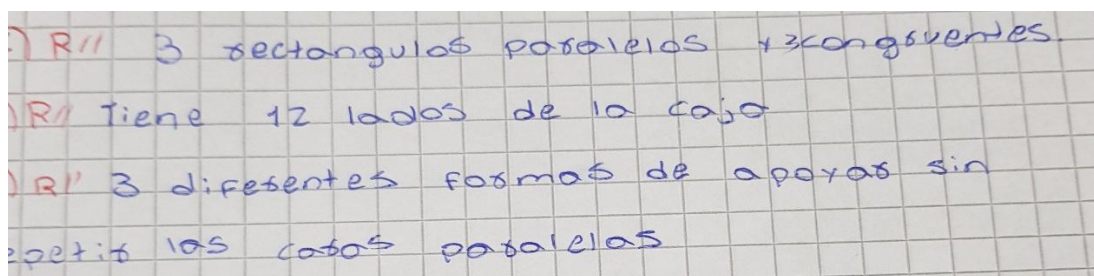 ) R// 3 rectangulos paralelos y 3congruentes.
) R// Tiene 12 lados de la caja
) R// 3 diferentes formas de apoyar sin
epetir las caras paralelas